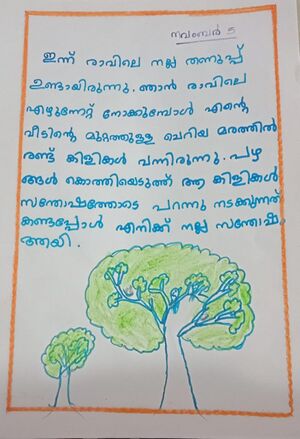 നവംബർ 5
ഇന്ന് രാവിലെ നല്ല തണുപ്പ്
ഉണ്ടായിരുന്നു. ഞാൻ രാവിലെ
എഴുന്നേറ്റ് നോക്കുമ്പോൾ എന്റെ
വീടിന്റെ മുറ്റത്തുള്ള ചെറിയ മരത്തിൽ
രണ്ട് കിളികൾ വന്നിരുന്നു. പഴ
ങ്ങൾ കൊത്തിയെടുത്ത് ആ കിളികൾ
സന്തോഷത്തോടെ പറന്നു നടക്കുന്നത്
കണ്ടപ്പോൾ എനിക്ക് നല്ല സന്തോഷ
ത്തയി.